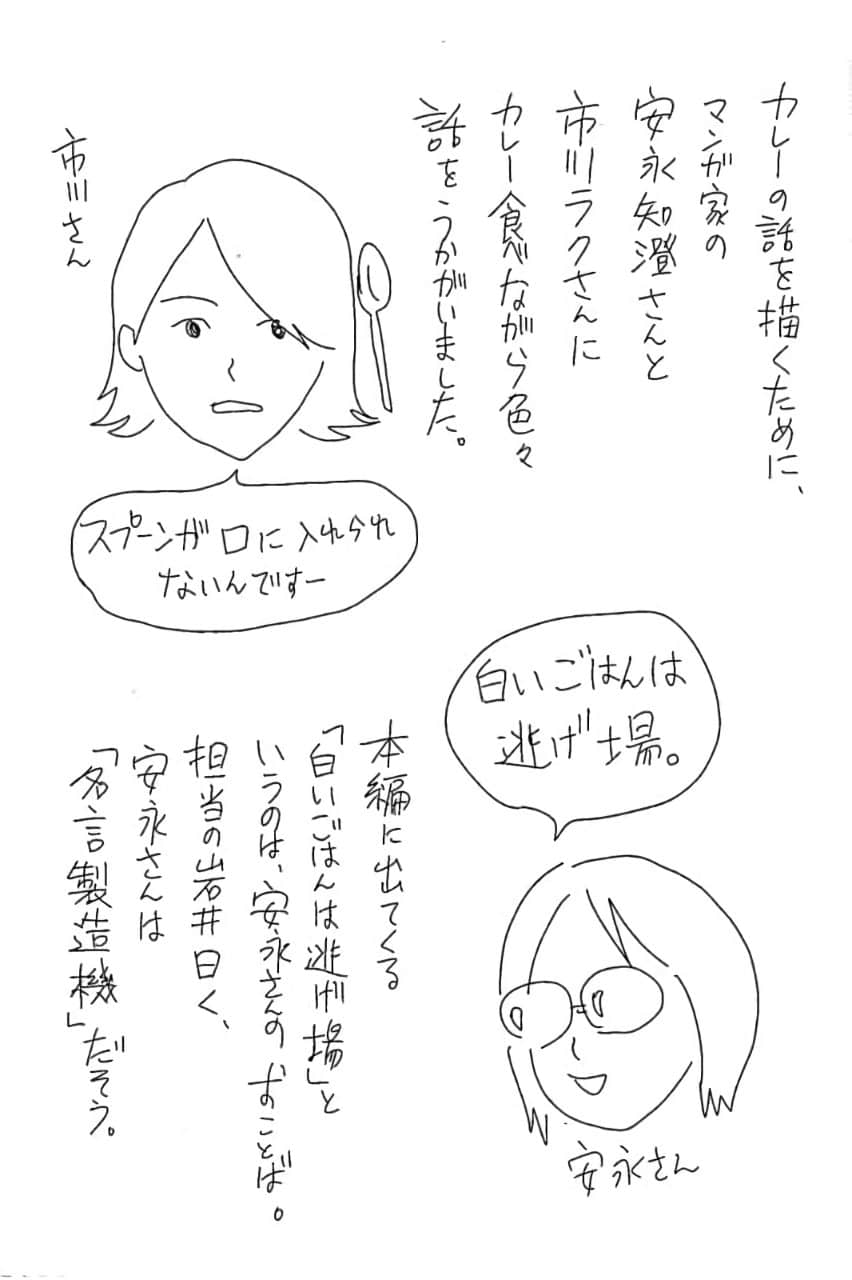 カレーの話を描くために、
マンガ家の
安永知澄さんと
市川ラクさんに
カレー食べながら色々
話をうかがいました。
市川さん
スプーンが口に入れられ
ないんですー
白いごはんは
逃げ場。
安永さん
本編に出てくる
「白いごはんは逃げ場」と
いうのは、安永さんのおことば。
担当の岩井曰く、
安永さんは
「名言製造機」だそう。